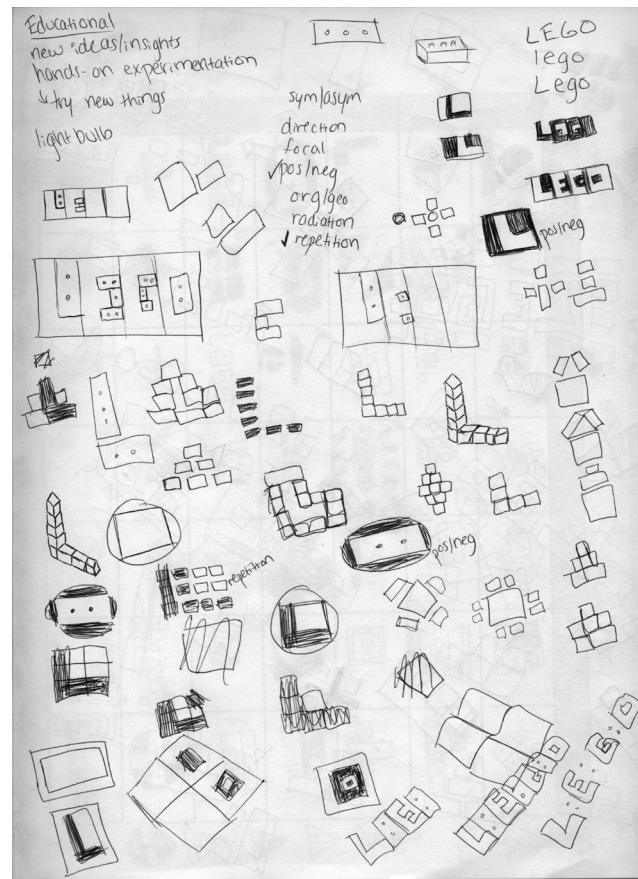 Educational
new ideas/insights
hands-on experimentation
↳ try new things
light bulb
LEGO
lego
Lego
sym/asym
direction
focal
✓pos/neg
org/geo
radiation
✓ repetition
LEGO
LEGO
pos/neg
pos/neg
repetition
LEGO
LEGO
L·E·G·O